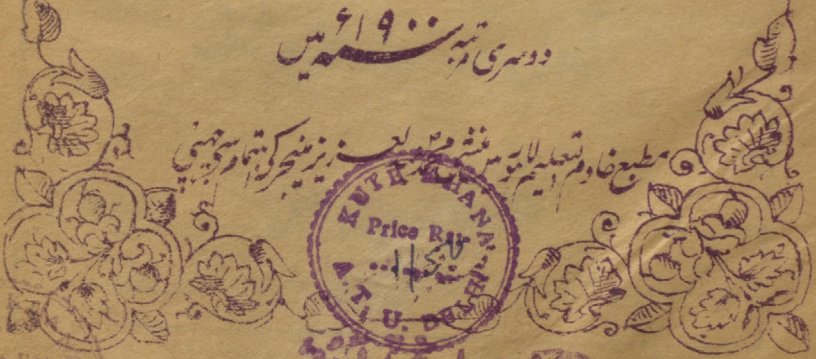 دوسری مرتبہ سنہ ۱۹۰۰ء میں
مطبع خادم التعلیم لاہور میں منشی محمد عبدالعزیز منیجر کے اہتمام سے چھپی
KUTUB KHANA
Price Rs.
A. T. U. DELHI